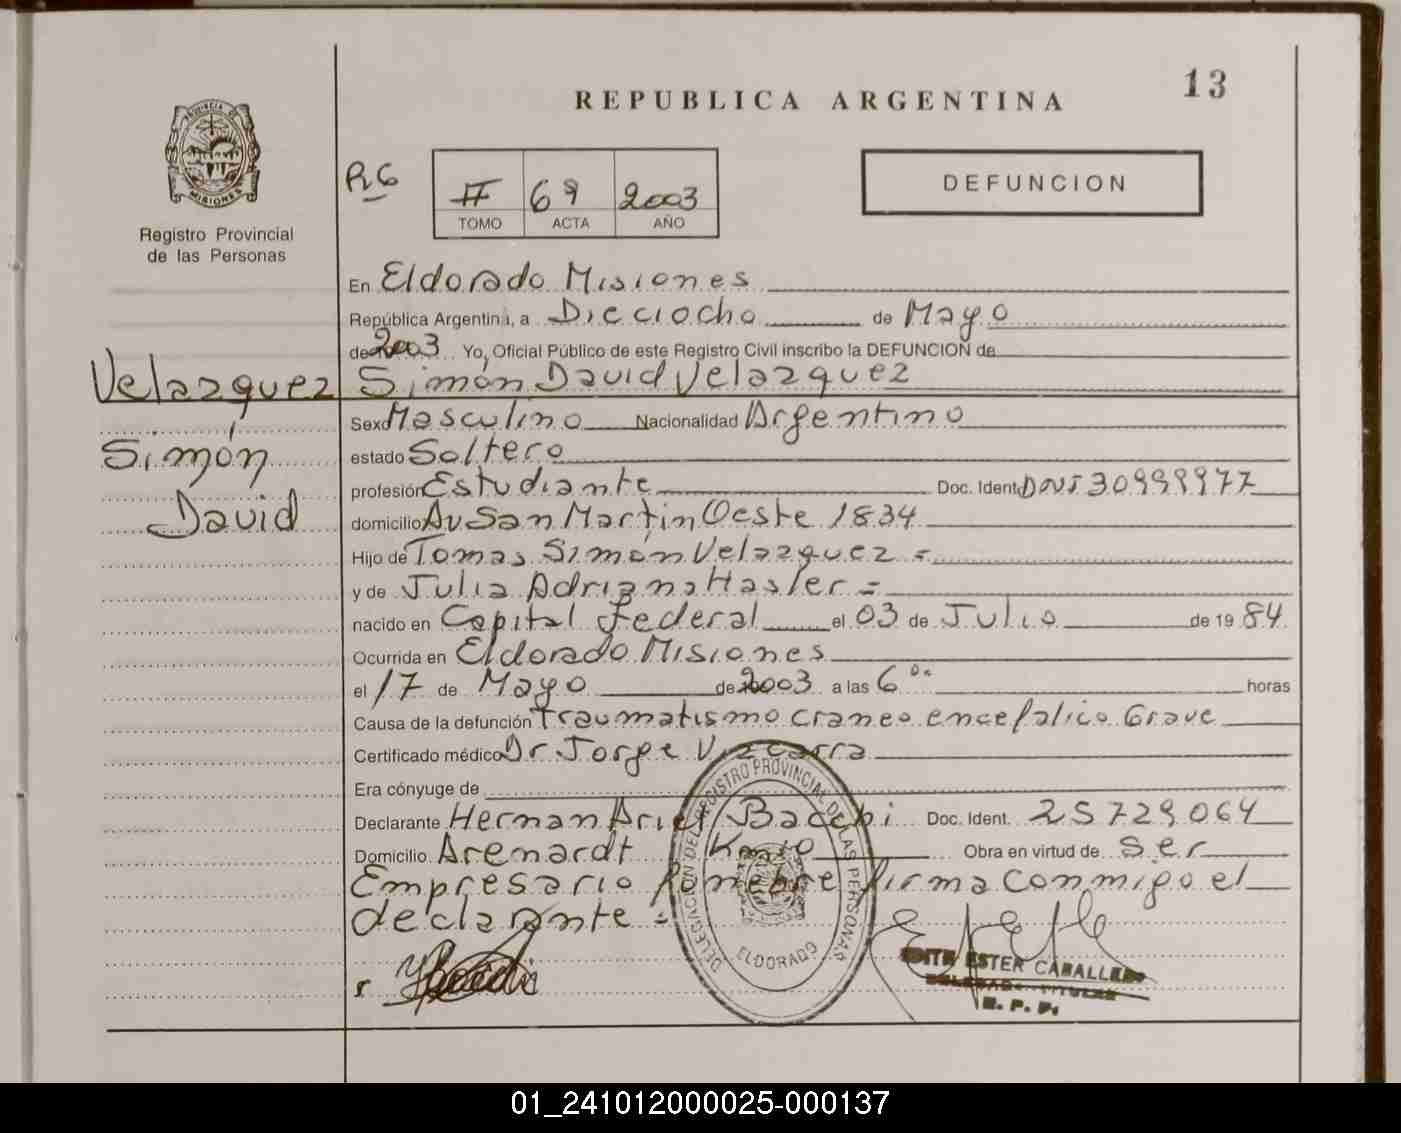 13
REPUBLICA ARGENTINA
PROVINCIA D
MISIONES
Registro Provincial
de las Personas
R6
II 69 2003
TOMO ACTA AÑO
DEFUNCION
En Eldorado Misiones
República Argentina, a Dieciocho de Mayo
de 2003 Yo, Oficial Público de este Registro Civil inscribo la DEFUNCION de
Velazquez Simón David Velazquez
Simón
David
Sexo Masculino Nacionalidad Argentino
estado Soltero
profesión Estudiante Doc. Ident. DNI 30999977
domicilio Av San Martin Oeste 1834
Hijo de Tomas Simón Velazquez =
y de Julia Adriana Hasler =
nacido en Capital Federal el 03 de Julio de 19 84
Ocurrida en Eldorado Misiones
el 17 de Mayo de 2003 a las 6 00 horas
Causa de la defunción Traumatismo craneo encefalico Grave
Certificado médico Dr. Jorge Vizcarra
Era cónyuge de
Declarante Hernan Ariel Bacchi Doc. Ident. 25729064
Domicilio Aremardt Km 10 Obra en virtud de Ser
Empresario Funebre firma conmigo el
declarante =
DELEGACION DEL REGISTRO PROVINCIAL DE LAS PERSONAS
ELDORADO
EDITH ESTER CABALLERO
DELEGADA TITULAR
R. P. P.
01_241012000025-000137